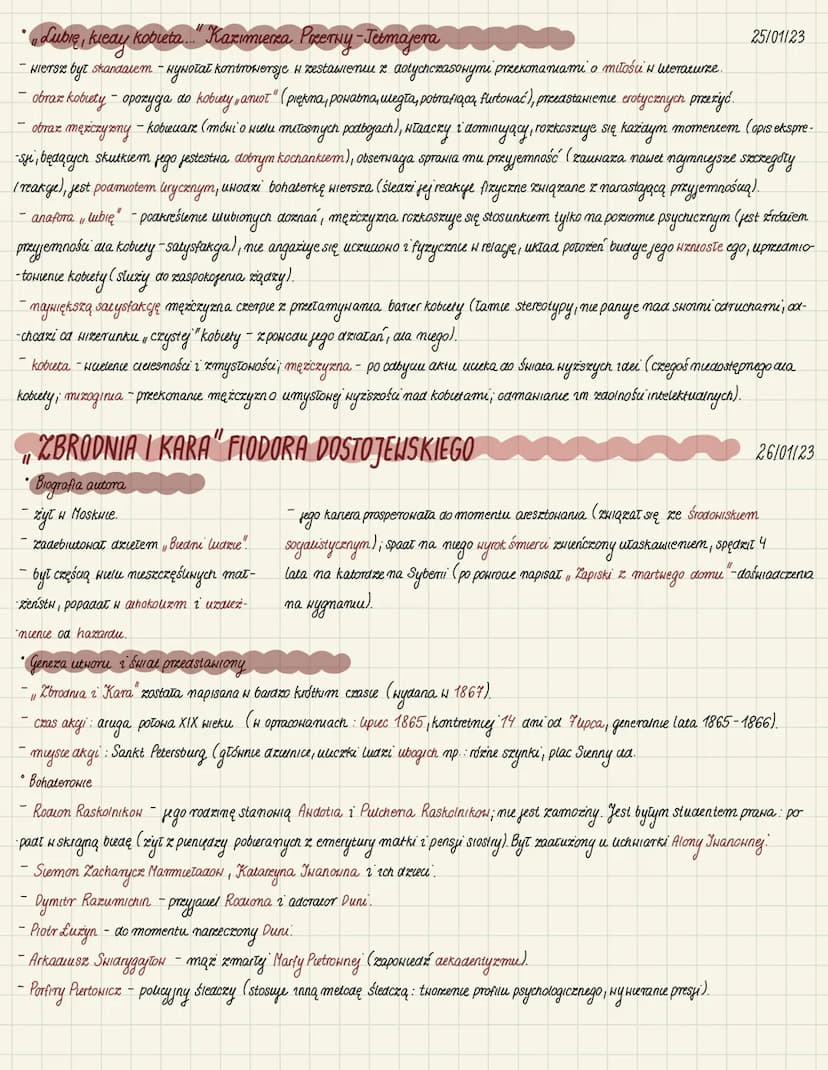 • „Lubię, kiedy kobieta..." Kazimierza Przerwy-Tetmajera
25/01/23
- wiersz był skandalem - wywołał kontrowersje w zestawieniu z dotychczasowymi przekonaniami o miłości w literaturze.
- obraz kobiety - opozycja do kobiety „anioł" (piękna, powabna, uległa, potrafiąca flirtować), przedstawienie erotycznych przeżyć.
- obraz mężczyzny - kobieciarz (mówi o wielu miłosnych podbojach), władczy i dominujący, rozkoszuje się każdym momentem (opis ekspre-
-sji, będących skutkiem jego jestestwa dobrym kochankiem), obserwacja sprawia mu przyjemność (zauważa nawet najmniejsze szczegóły
/reakcje), jest podmiotem lirycznym, uwodzi bohaterkę wiersza (śledzi jej reakcje fizyczne związane z narastającą przyjemnością).
- anafora „lubię" - podkreślenie ulubionych doznań, mężczyzna rozkoszuje się stosunkiem tylko na poziomie psychicznym (jest źródłem
przyjemności dla kobiety - satysfakcja), nie angażuje się uczuciowo i fizycznie w relację, układ położeń buduje jego wzniosłe ego, uprzedmio-
-towienie kobiety (służy do zaspokojenia żądzy).
- największą satysfakcję mężczyzna czerpie z przełamywania barier kobiety (łamie stereotypy, nie panuje nad swoimi odruchami, od-
-chodzi od wizerunku „czystej" kobiety - z powodu jego działań, dla niego).
- kobieta - wcielenie cielesności i zmysłowości; mężczyzna - po odbyciu aktu ucieka do świata wyższych idei (czegoś niedostępnego dla
kobiety; mizoginia - przekonanie mężczyzn o umysłowej wyższości nad kobietami; odmawianie im zdolności intelektualnych).
„ZBRODNIA I KARA" FIODORA DOSTOJEWSKIEGO
26/01/23
• Biografia autora
- żył w Moskwie.
- zadebiutował dziełem „Biedni ludzie".
- był częścią wielu nieszczęśliwych mał-
-żeństw, popadał w alkoholizm i uzależ-
-nienie od hazardu.
- jego kariera prosperowała do momentu aresztowania (związał się ze środowiskiem
socjalistycznym); spadł na niego wyrok śmierci zwieńczony ułaskawieniem, spędził 4
lata na katordze na Syberii (po powrocie napisał „Zapiski z martwego domu" - doświadczenia
na wygnaniu).
• Geneza utworu i świat przedstawiony
- „Zbrodnia i Kara" została napisana w bardzo krótkim czasie (wydana w 1867).
- czas akcji: druga połowa XIX wieku (w opracowaniach: lipiec 1865, konkretniej 14 dni od 7 lipca, generalnie lata 1865-1866).
- miejsce akcji: Sankt Petersburg (głównie dzielnice, uliczki ludzi ubogich np.: różne szynki, plac Sienny itd.
• Bohaterowie
- Rodion Raskolnikow - jego rodzinę stanowią Awdotia i Pulcheria Raskolnikow; nie jest zamożny. Jest byłym studentem prawa: po-
-padł w skrajną biedę (żył z pieniędzy pobieranych z emerytury matki i pensji siostry). Był zadłużony u lichwiarki Alony Iwanownej.
- Siemion Zacharycz Marmieładow, Katarzyna Iwanowna i ich dzieci.
- Dymitr Razumichin - przyjaciel Rodiona i adorator Duni.
- Piotr Łużyn - do momentu narzeczony Duni.
- Arkadiusz Swidrygajłow - mąż zmarłej Marfy Pietrownej (zapowiedź dekadentyzmu).
- Porfiry Piertowicz - policyjny śledczy (stosuje inną metodę śledczą: tworzenie profilu psychologicznego, wywieranie presji).